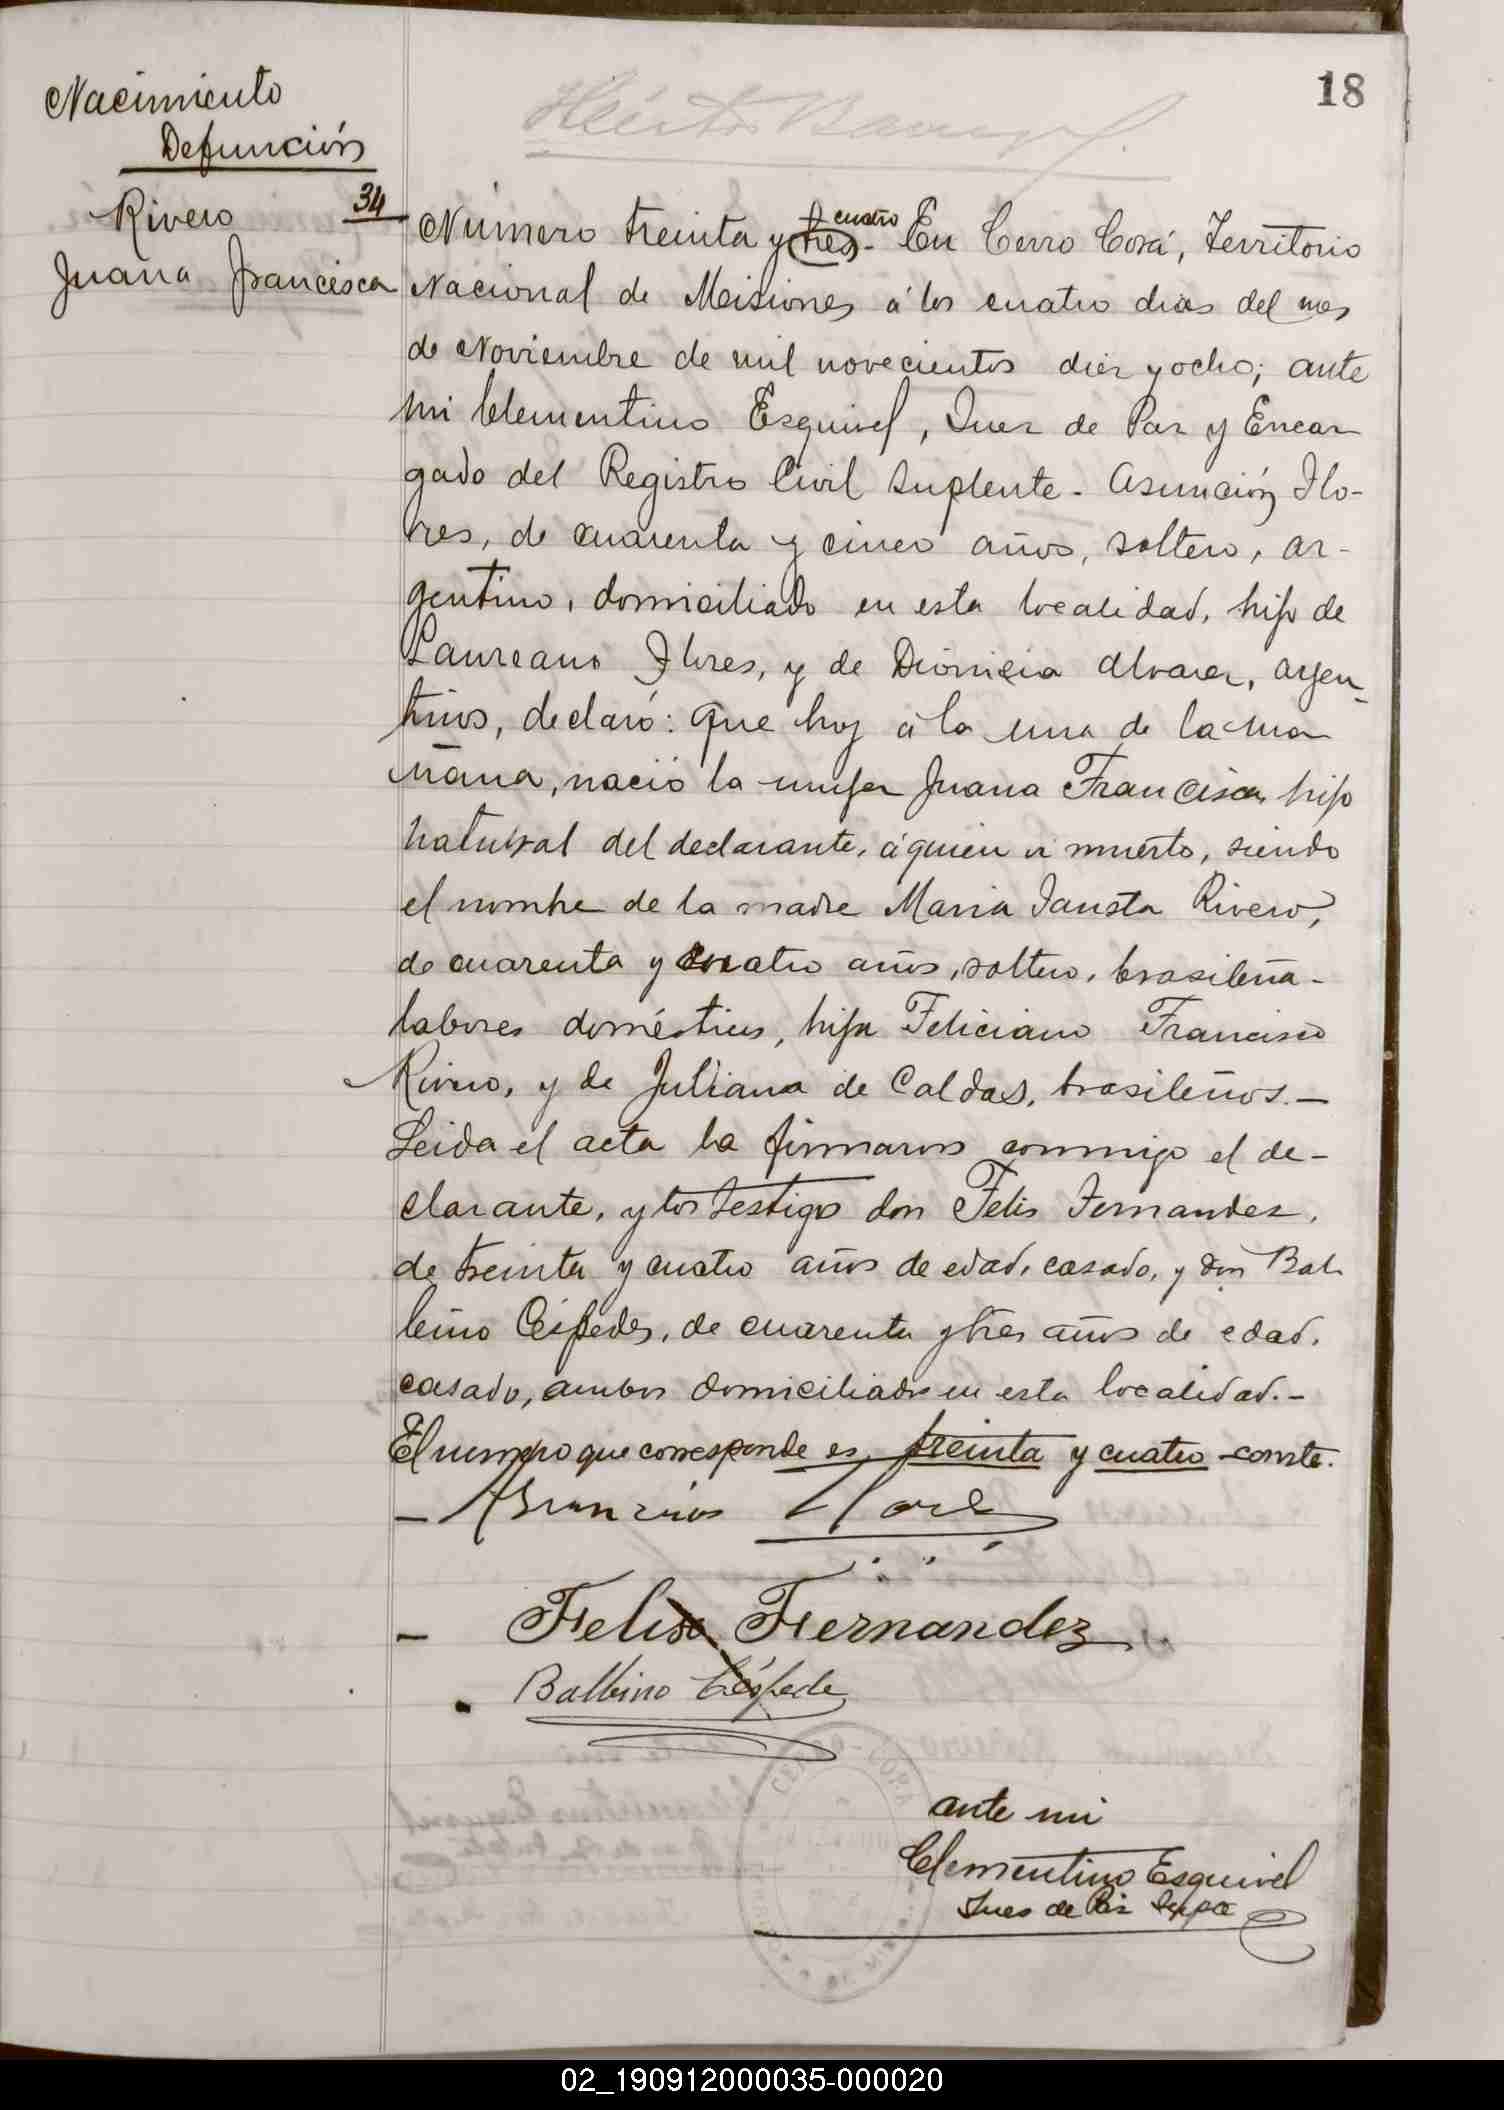 18
Nacimiento
Defunción
Rivero
Juana Francisca
34
cuatro
Número treinta y tres - En Cerro Corá, Territorio
Nacional de Misiones á los cuatro dias del mes
de Noviembre de mil novecientos diez y ocho; ante
mi Clementino Esquivel, Juez de Paz y Encar
gado del Registro Civil Suplente - Asunción Flo-
res, de cuarenta y cinco años, soltero, ar-
gentino, domiciliado en esta localidad, hijo de
Laureano Flores, y de Dionicia Alvarez, argen_
tinos, declaró: que hoy á la una de la ma
ñana, nació la mujer Juana Francisca, hijo
natural del declarante, á quien vi muerto, siendo
el nombre de la madre Maria Fausta Rivero,
de cuarenta y cuatro años, soltero, brasileña -
labores domésticos, hija Feliciano Francisco
Rivero, y de Juliana de Caldas, brasileños. —
Leida el acta la firmaron conmigo el de-
clarante, y los testigos don Felis Fernandez,
de treinta y cuatro años de edad, casado, y don Bal
bino Céspedes, de cuarenta y tres años de edad,
casado, ambos domiciliados en esta localidad. -
El numero que corresponde es, treinta y cuatro - conste.
- Asunción Flore
- Felis Fernandez
Balbino Céspede
CERRO-CORA
ante mi
Clementino Esquivel
Jues de Paz Supte
02_190912000035-000020